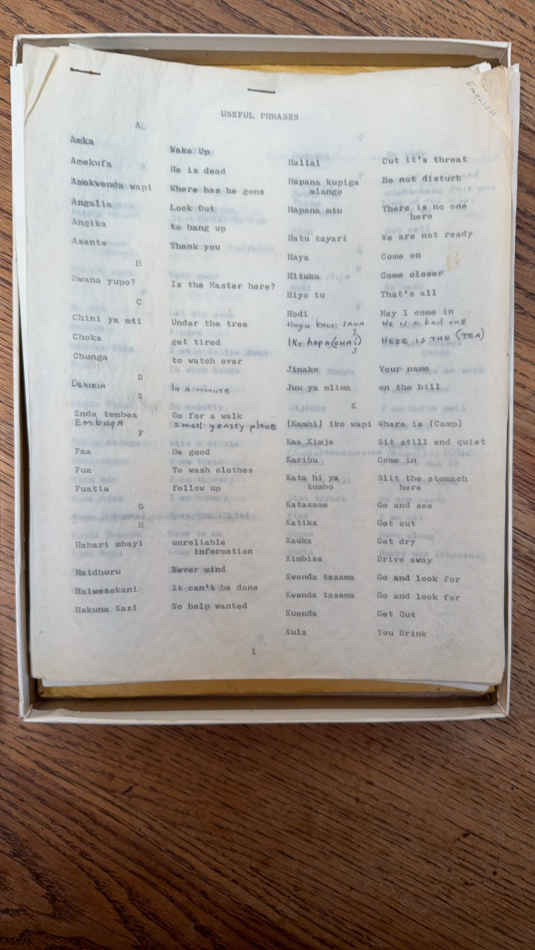 English
USEFUL PHRASES
A
Amka Wake Up
Amekufa He is dead
Amekwenda wapi Where has he gone
Angalia Look Out
Angika to hang up
Asante Thank you
B
Bwana yupo? Is the Master here?
C
Chini ya mti Under the tree
Choka get tired
Chunga to watch over
D
Dakika in a minute
E
Enda tembea Go for a walk
Embuga small grassy plane
F
Faa Be good
Fua To wash clothes
Fuatia follow up
G
H
Habari mbayi unreliable
information
Haidhuru Never mind
Haiwezekani It can't be done
Hakuna Kazi No help wanted
Hallal Cut it's throat
Hapana kupiga Do not disturb
mlango
Hapana mtu There is no one
here
Hatu tayari We are not ready
Haya Come on
Hituka Come closer
Hiyo tu That's all
Hodi May I come in
Huyu He is a bad one
Iko hapa (chai) HERE IS THE (TEA)
J
Jinako Your name
Juu ya mlima on the hill
K
(Kambi) iko wapi Where is (Camp)
Kaa Kimja Sit still and quiet
Karibu Come in
Kata hi ya Slit the stomach
tumbo here
Katazame Go and see
Katika Get out
Kauka Get dry
Kimbiza Drive away
Kwenda tazama Go and look for
Kwenda tazama Go and look for
Kuenda Get Out
Kula You Drink
1